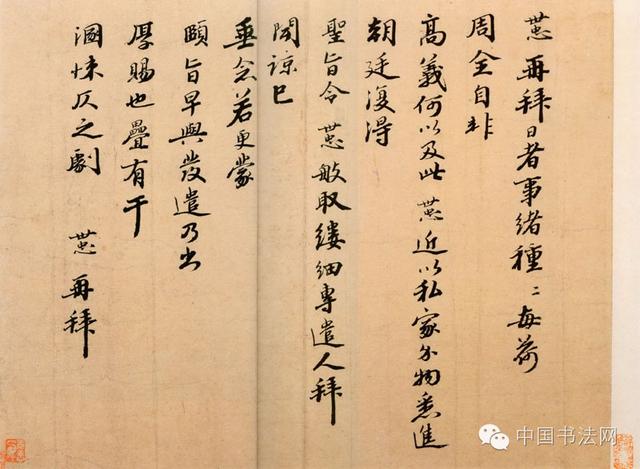 再拜日者事緒種〻每荷
周全自非
高義何以及此 近以私家分物悉進
朝廷復得
聖旨令 取縷細專遣人拜
聞諒已
垂念若更蒙
頤旨早與發遣乃出
厚賜也疊有干
溷悚仄之劇 再拜
中国书法网